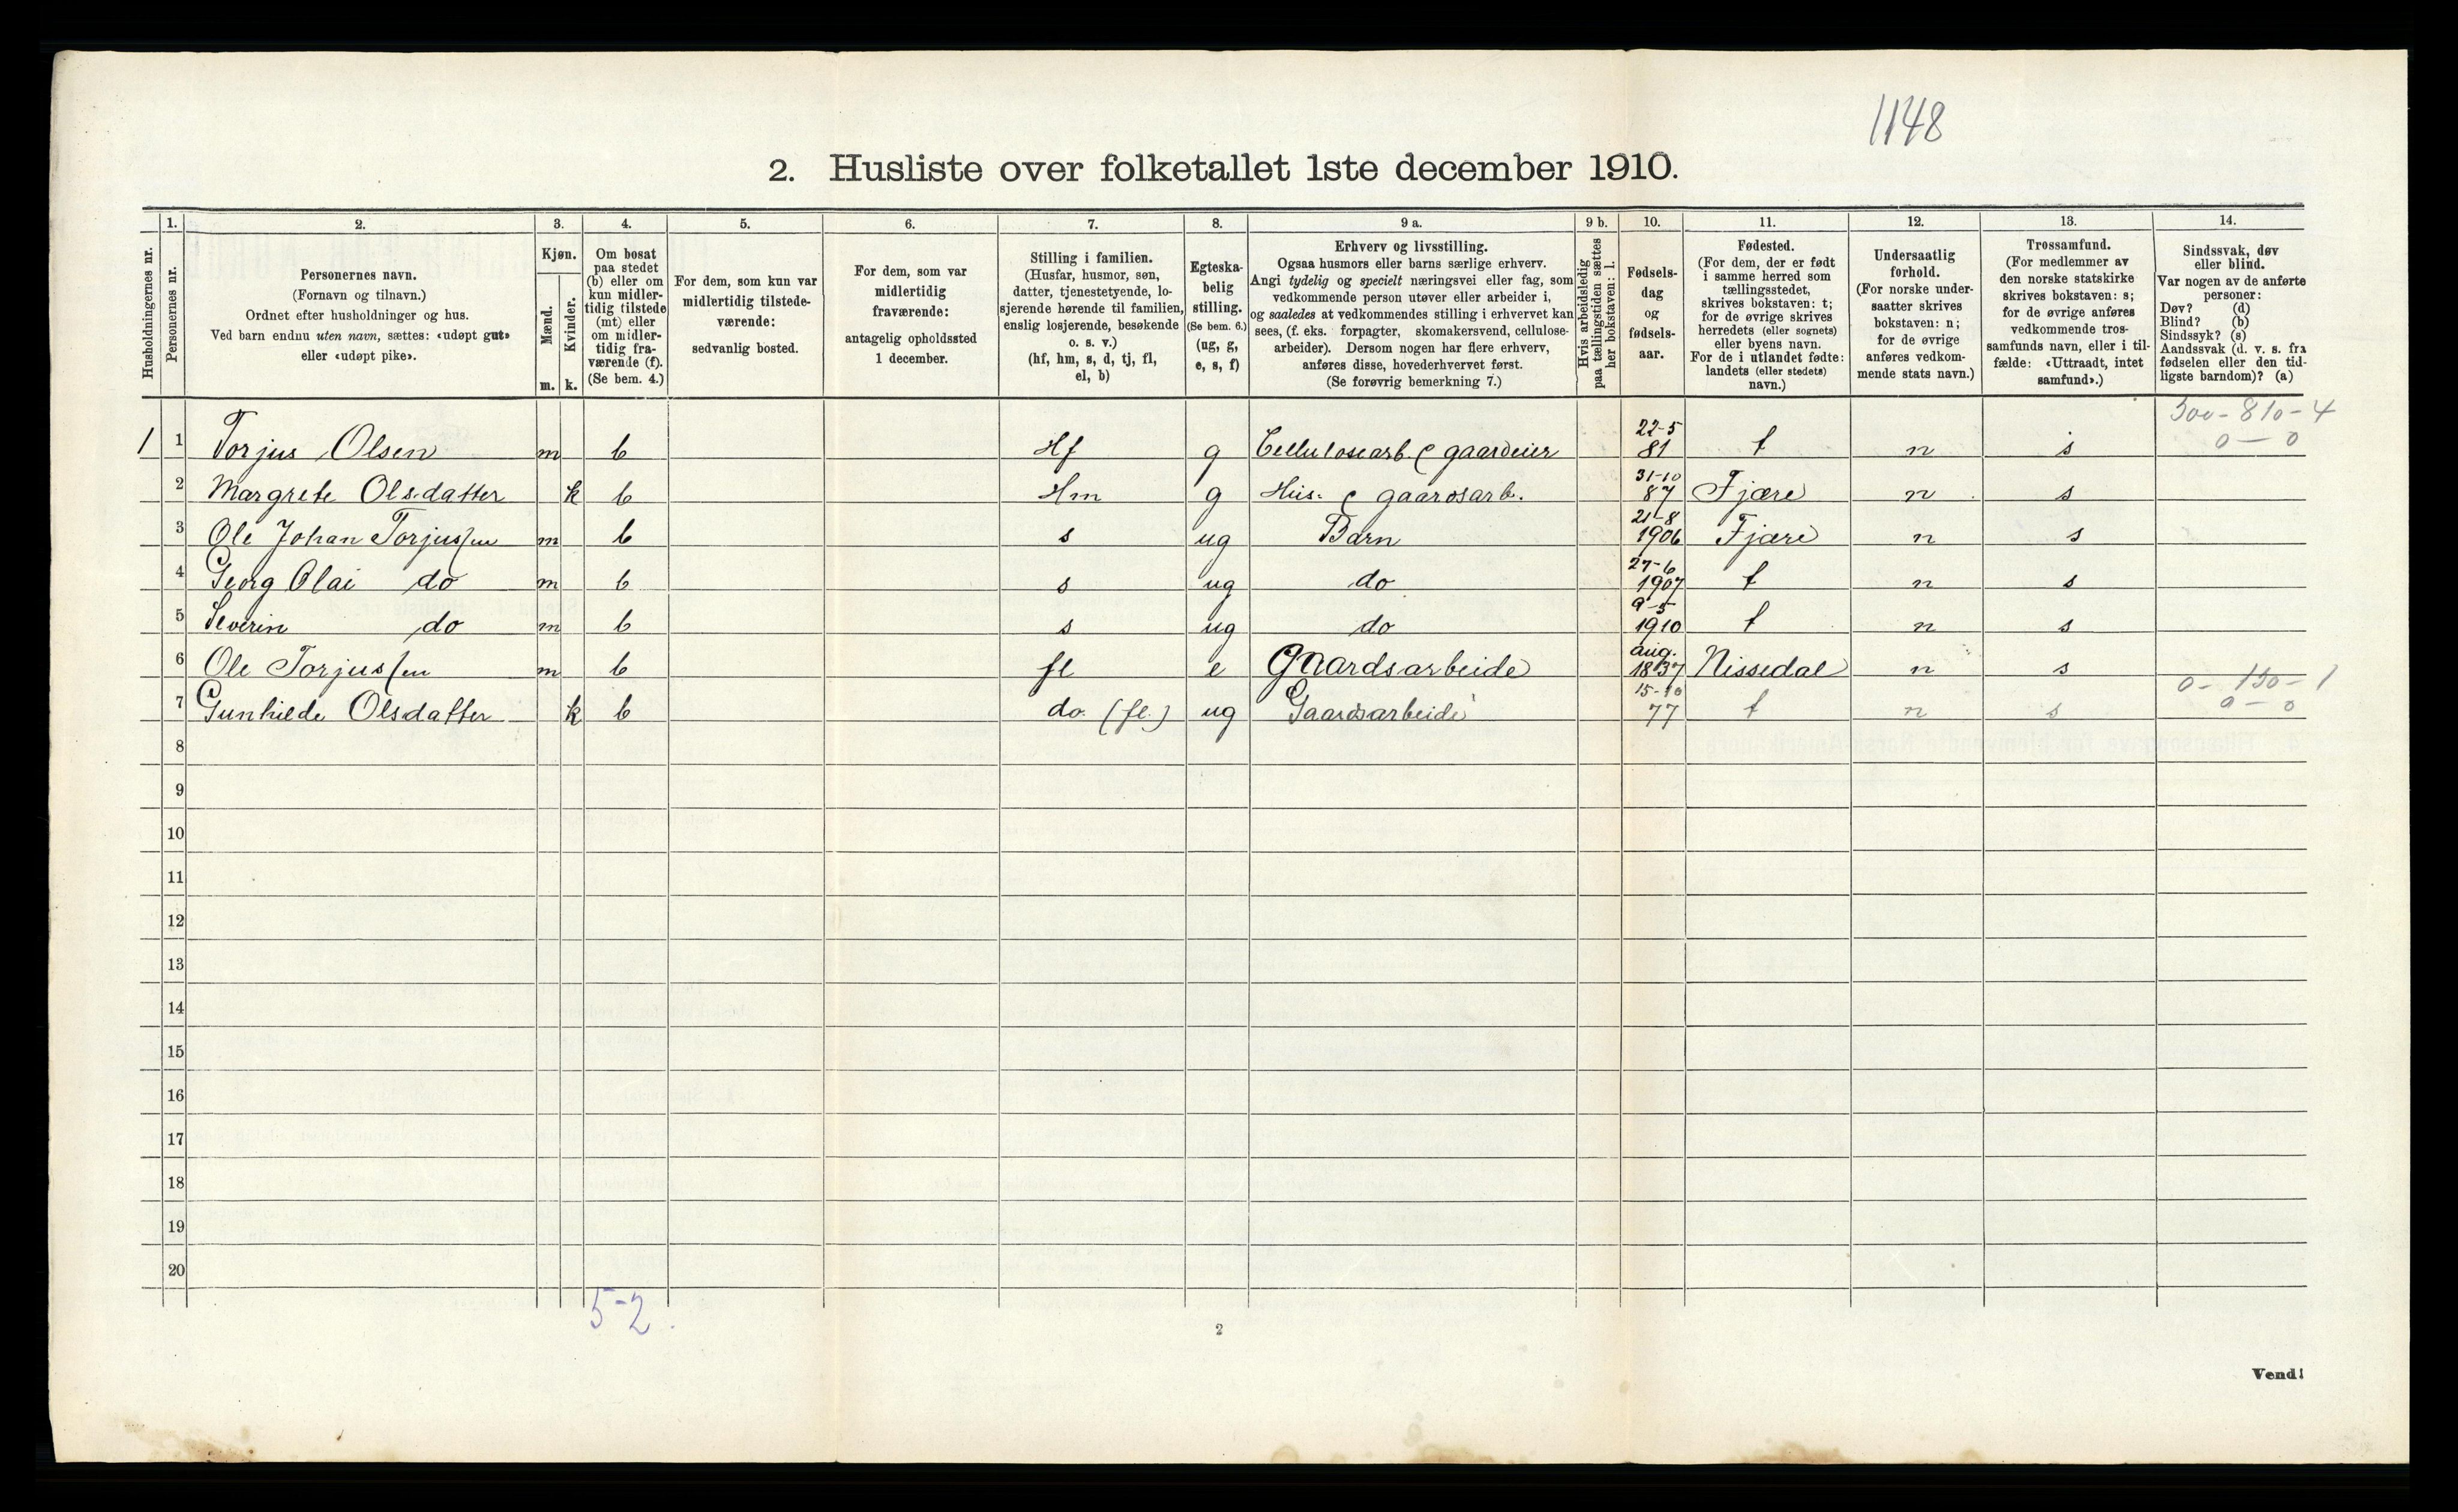 1148
2. Husliste over folketallet 1ste december 1910.
1. 2. 3. 4. 5. 6. 7. 8. 9 a. 9 b. 10. 11. 12. 13. 14.
Husholdningernes nr.
Personernes nr.
Personernes navn.
(Fornavn og tilnavn.)
Ordnet efter husholdninger og hus.
Ved barn endnu uten navn, sættes: «udøpt gut»
eller «udøpt pike».
Kjøn.
Mænd.
Kvinder.
m. k.
Om bosat
paa stedet
(b) eller om
kun midler-
tidig tilstede
(mt) eller
om midler-
tidig fra-
værende (f).
(Se bem. 4.)
For dem, som kun var
midlertidig tilstede-
værende:
sedvanlig bosted.
For dem, som var
midlertidig
fraværende:
antagelig opholdssted
1 december.
Stilling i familien.
(Husfar, husmor, søn,
datter, tjenestetyende, lo-
sjerende hørende til familien,
enslig losjerende, besøkende
o. s. v.)
(hf, hm, s, d, tj, fl,
el, b)
Egteska-
belig
stilling.
(Se bem. 6.)
(ug, g,
e, s, f)
Erhverv og livsstilling.
Ogsaa husmors eller barns særlige erhverv.
Angi tydelig og specielt næringsvei eller fag, som
vedkommende person utøver eller arbeider i,
og saaledes at vedkommendes stilling i erhvervet kan
sees, (f. eks. forpagter, skomakersvend, cellulose-
arbeider). Dersom nogen har flere erhverv,
anføres disse, hovederhvervet først.
(Se forøvrig bemerkning 7.)
Hvis arbeidsledig
paa tællingstiden sættes
her bokstaven: l.
Fødsels-
dag
og
fødsels-
aar.
Fødested.
(For dem, der er født
i samme herred som
tællingsstedet,
skrives bokstaven: t;
for de øvrige skrives
herredets (eller sognets)
eller byens navn.
For de i utlandet fødte:
landets (eller stedets)
navn.)
Undersaatlig
forhold.
(For norske under-
saatter skrives
bokstaven: n;
for de øvrige
anføres vedkom-
mende stats navn.)
Trossamfund.
(For medlemmer av
den norske statskirke
skrives bokstaven: s;
for de øvrige anføres
vedkommende tros-
samfunds navn, eller i til-
fælde: «Uttraadt, intet
samfund».)
Sindssvak, døv
eller blind.
Var nogen av de anførte
personer:
Døv? (d)
Blind? (b)
Sindssyk? (s)
Aandssvak (d. v. s. fra
fødselen eller den tid-
ligste barndom)? (a)
300-810-4
0-0
1 1 Torjus Olsen m b Hf g Cellulosearb. & gaardeier 22-5 81 t n s
2 Margrete Olsdatter k b Hm g Hus- & gaardsarb. 31-10 87 Fjære n s
3 Ole Johan Torjussen m b s ug Barn 21-8 1906 Fjære n s
4 Georg Olai do m b s ug do 27-6 1907 t n s
5 Severin do m b s ug do 9-5 1910 t n s
6 Ole Torjussen m b fl e Gaardsarbeide aug. 1837 Nissedal n s
0-150-1
7 Gunhilde Olsdatter k b do (fl.) ug Gaardsarbeide 15-10 77 t n s 0-0
8
9
10
11
12
13
14
15
16
17
18
19
20
5-2
2
Vend!